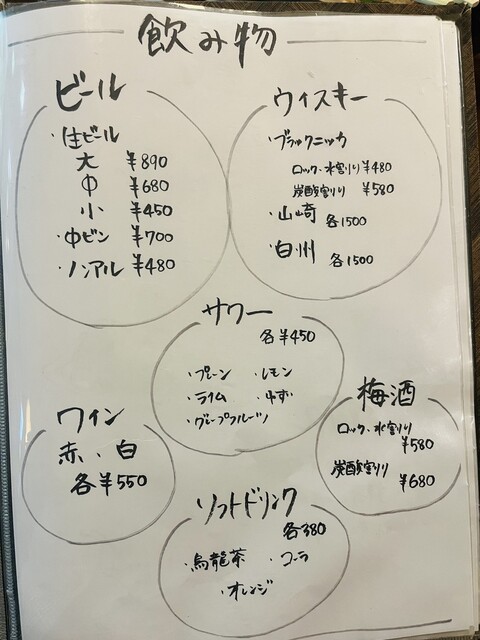 飲み物
ビール
・生ビール
大 ¥890
中 ¥680
小 ¥450
・中ビン ¥700
・ノンアル ¥480
ウィスキー
・ブラックニッカ
ロック・水割り ¥480
炭酸割り ¥580
・山崎 各1500
・白州 各1500
サワー
各¥450
・プレーン ・レモン
・ライム ・ゆず
・グレープフルーツ
ワイン
赤、白
各¥550
梅酒
ロック・水割り
¥580
炭酸割り
¥680
ソフトドリンク
各380
・烏龍茶 ・コーラ
・オレンジ